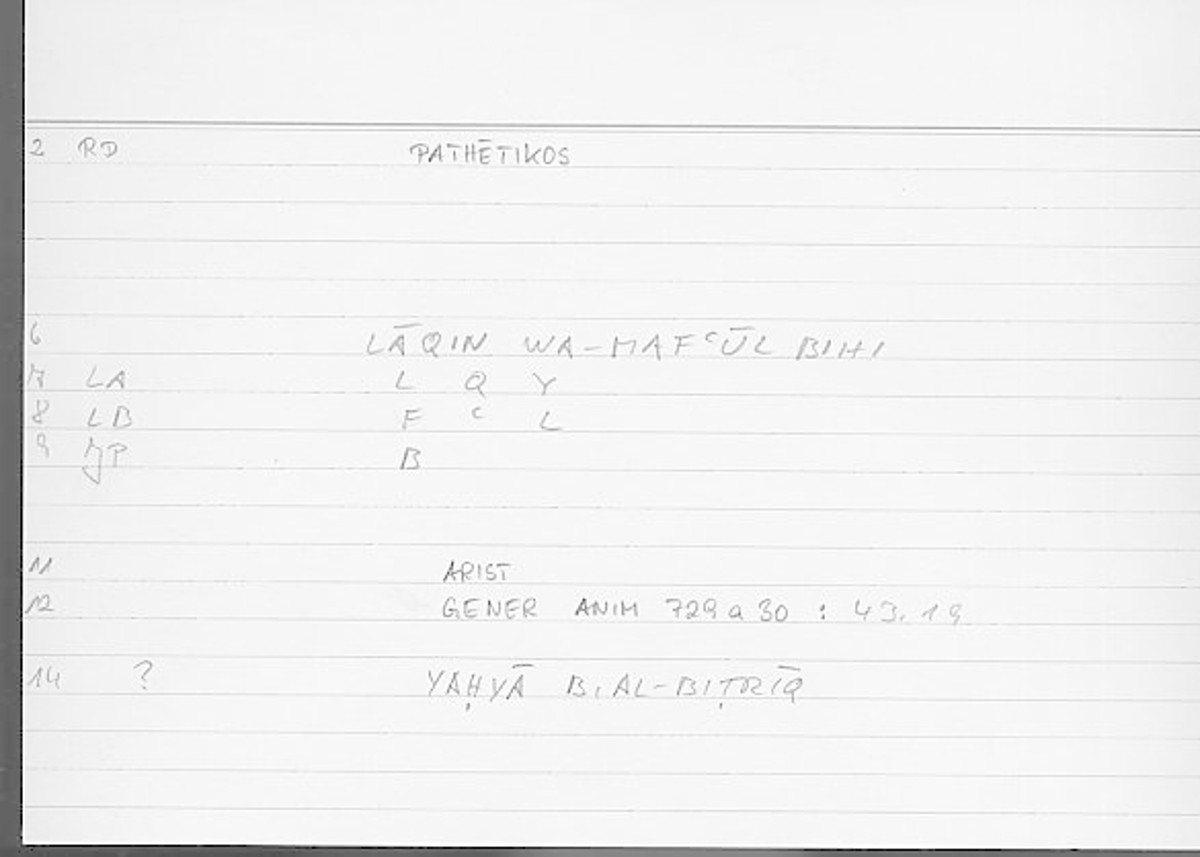 2 RD PATHĒTIKOS
6 LĀQIN WA-MAFᶜŪL BIHI
7 LA L Q Y
8 LB F ᶜ L
9 B
11 ARIST
12 GENER ANIM 729 a 30 : 43.19
14 ? YAḤYĀ B. AL-BIṬRĪQ